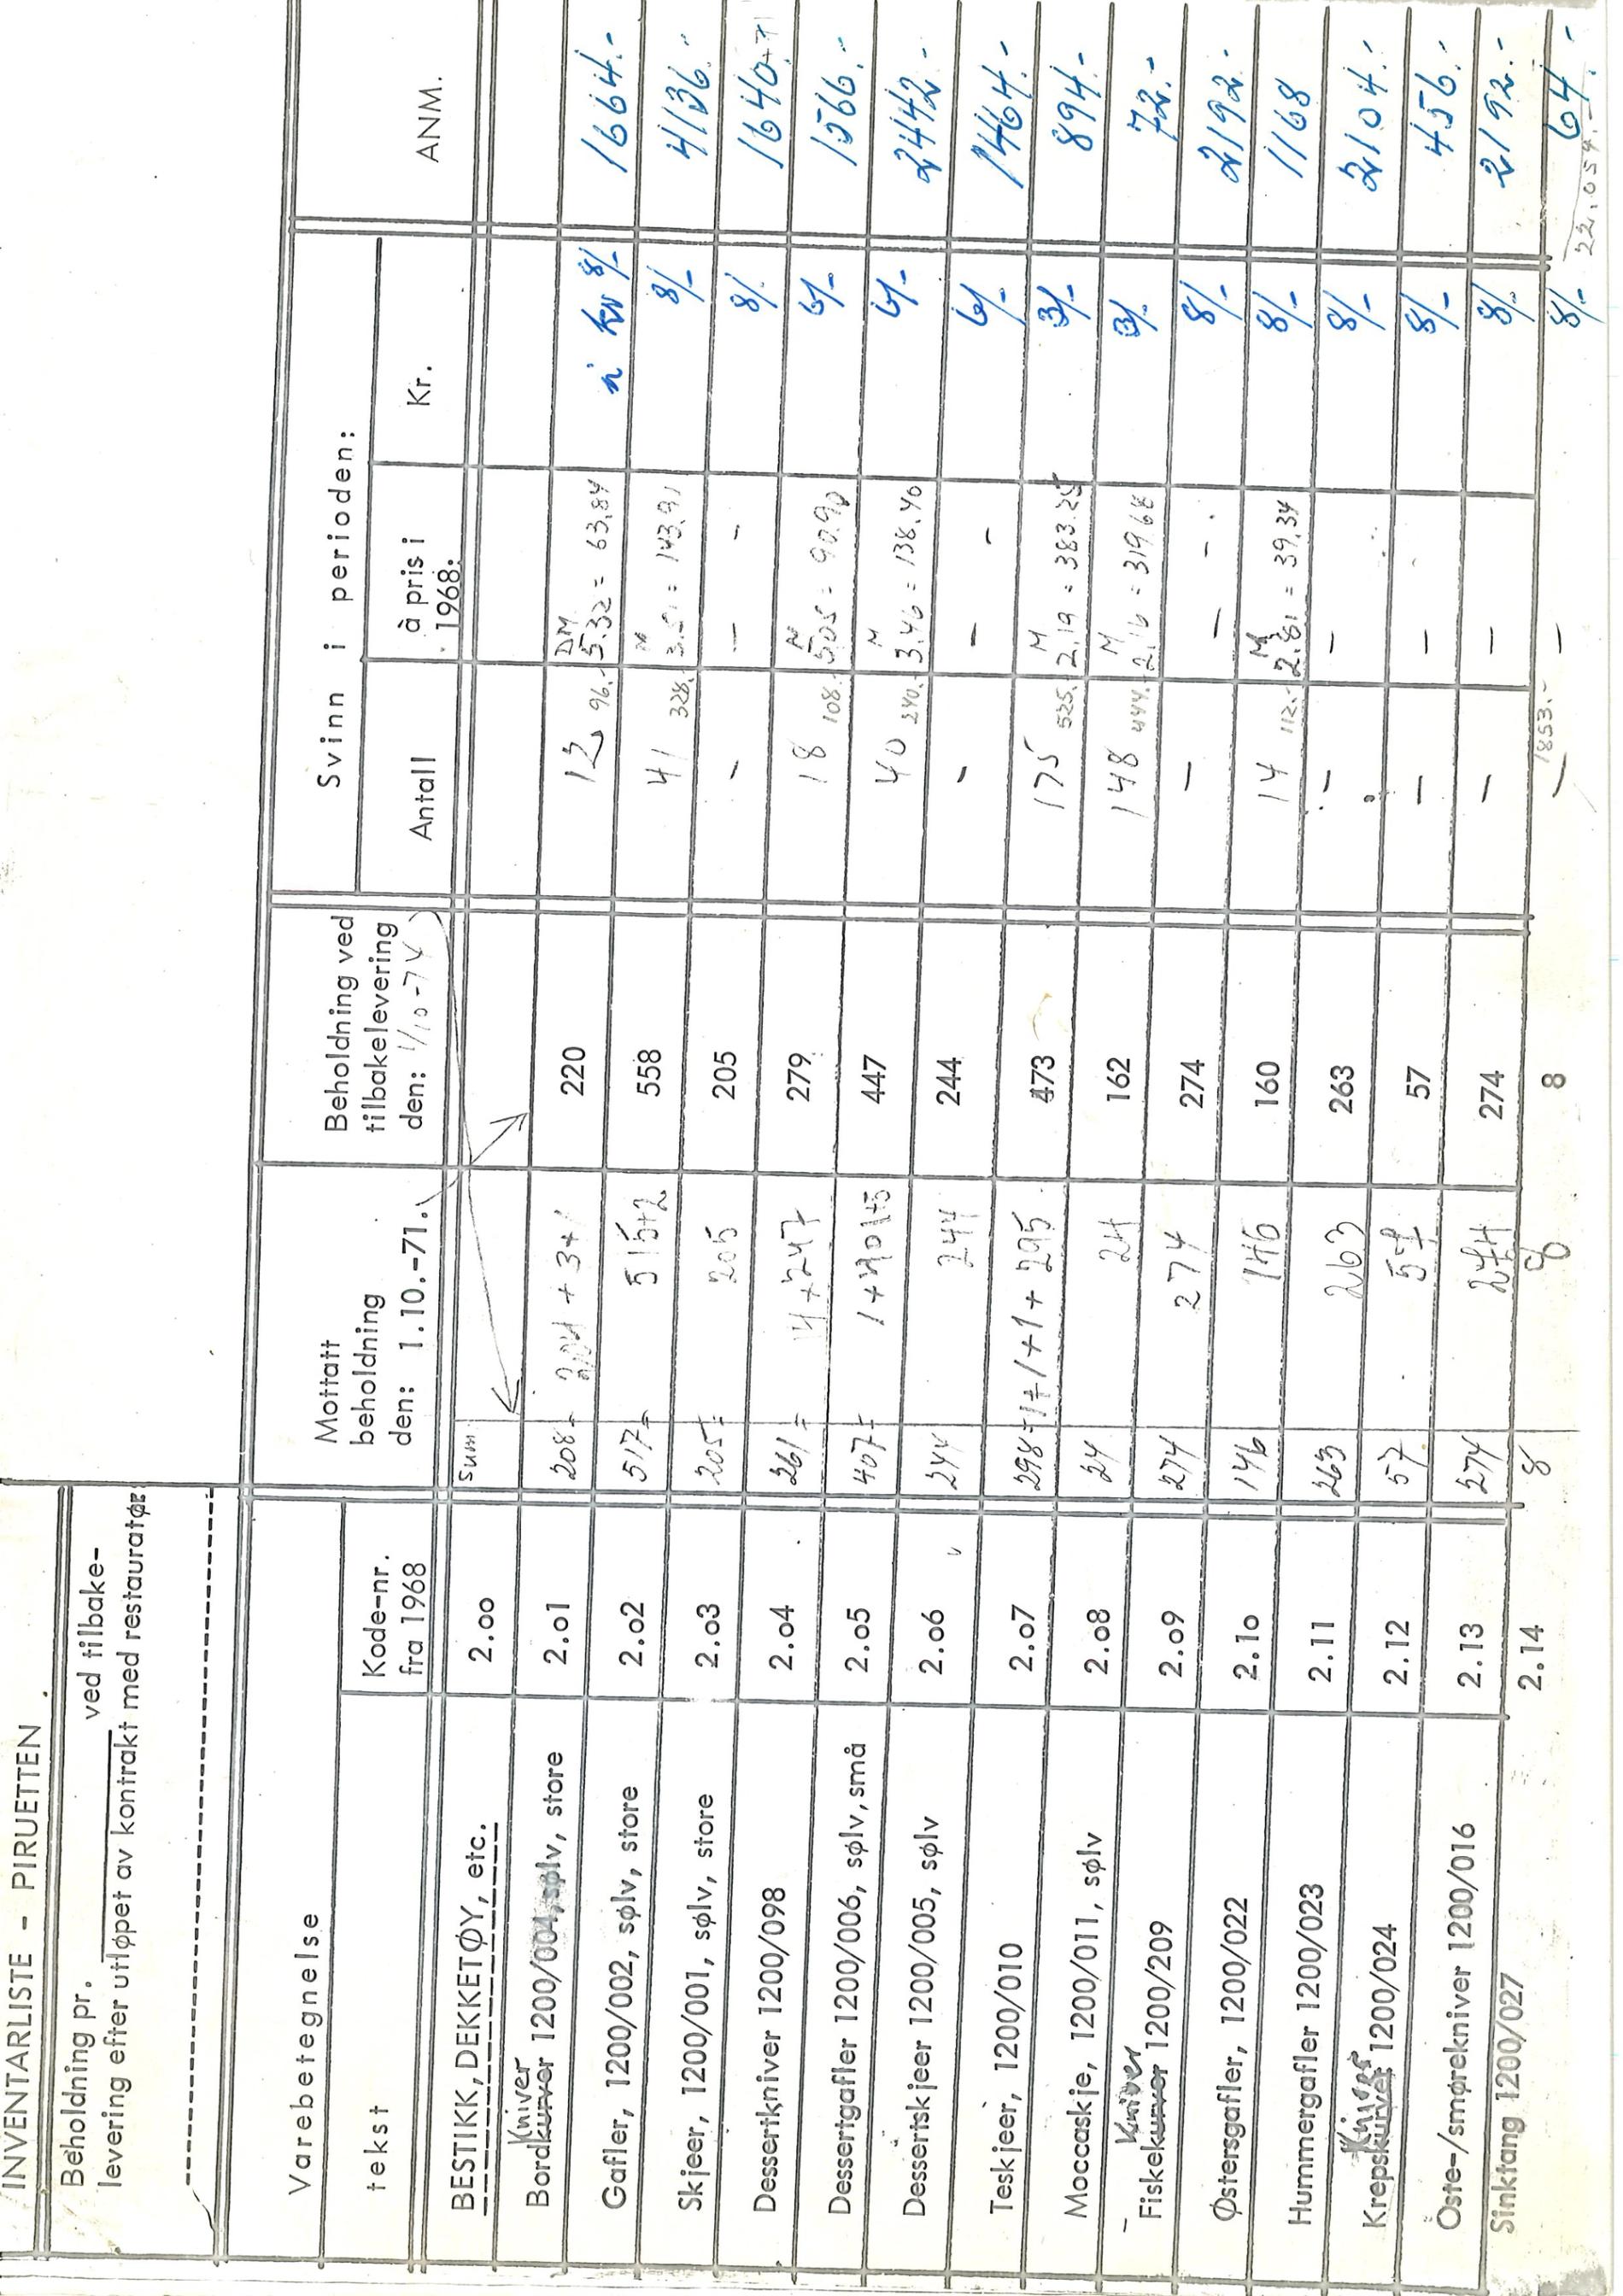 INVENTARLISTE - PIRUETTEN
Beholdning pr. ved tilbake-
levering efter utløpet av kontrakt med restauratør:
Varebetegnelse
tekst
Kode-nr.
fra 1968
Mottatt
beholdning
den: 1.10.-71.
Beholdning ved
tilbakelevering
den: 1/10-74
Svinn i perioden:
Antall
à pris i
1968:
Kr.
ANM.
BESTIKK, DEKKETØY, etc. 2.oo Sum
Kniver
Bordkurver 1200/004, sølv, store 2.o1 208 = 204 + 3+1 220 12 96.- DM 5.32 = 63.84 à kr 8/- 1664.-
Gafler, 1200/002, sølv, store 2.o2 517 = 515+2 558 41 328.- 3.51 = 143.91 8/- 4136.-
Skjeer, 1200/001, sølv, store 2.o3 205 = 205 205 - - - 8/- 1640.-
Dessertkniver 1200/098 2.o4 261 = 14+247 279 18 108.- 5.05 = 90.90 6/- 1566.-
Dessertgafler 1200/006, sølv, små 2.o5 407 = 1+401+5 447 40 240.- M 3.46 = 138.40 6/- 2442.-
Dessertskjeer 1200/005, sølv 2.o6 244 244 244 - - - 6/- 1464.-
Teskjeer, 1200/010 2.o7 298 = 1+1+1+295 473 175 525.- M 2.19 = 383.25 3/- 894.-
Moccaskje, 1200/011, sølv 2.o8 24 24 162 148 444.- M 2.16 = 319.68 3/- 72.-
Kniver
Fiskekurver 1200/209 2.o9 274 274 274 - - - 8/- 2192.-
Østersgafler, 1200/022 2.1o 146 146 160 14 112.- M 2.81 = 39.34 8/- 1168
Hummergafler 1200/023 2.11 263 263 263 - - 8/- 2104.-
Kniver
Krepskurver 1200/024 2.12 57 57 57 - - 8/- 456.-
Oste-/smørekniver 1200/016 2.13 274 274 274 - - 8/- 2192.-
Sinktang 1200/027 2.14 8 8 8 - - 8/- 64.-
1853.- 22.054.-